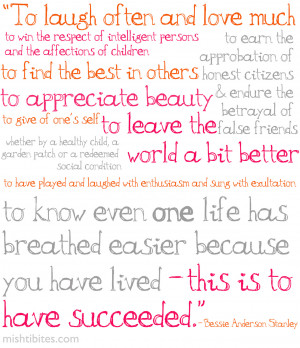 "To laugh often and love much
to win the respect of intelligent persons
and the affections of children
to earn the
approbation of
honest citizens
to find the best in others
to appreciate beauty
& endure the
betrayal of
false friends
to give of one's self
to leave the
world a bit better
whether by a healthy child, a
garden patch or a redeemed
social condition
to have played and laughed with enthusiasm and sung with exultation
to know even one life has
breathed easier because
you have lived - this is to
have succeeded."
- Bessie Anderson Stanley
mishtibites.com